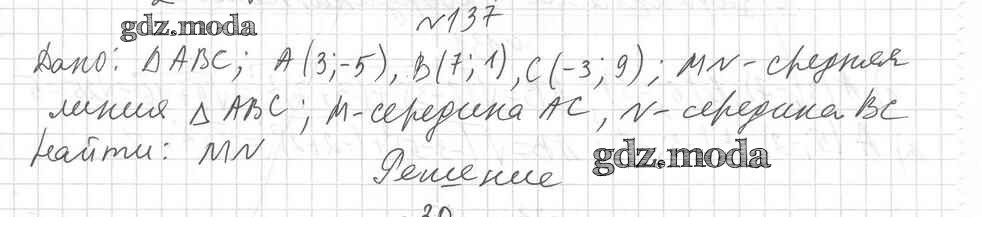 №137
gdz.moda
Дано: ΔABC; A(3;-5), B(7;1), C(-3;9); MN-средняя
линия Δ ABC; M-середина AC, N-середина BC
Найти: MN
gdz.moda
Решение